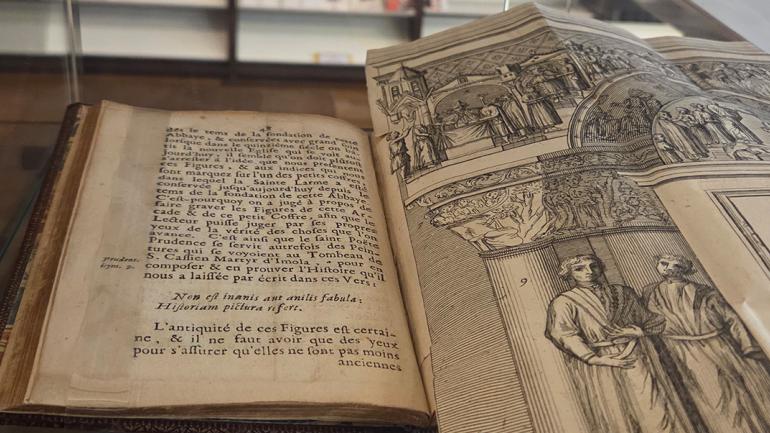 48
dés le tems de la fondation de cette
Abbaye, & conservées avec grand soin
lorsque dans le quinziéme siecle on bâ-
tit la nouvelle Eglise qui se voit au-
jourd'huy, il semble qu'on doit plûtost
s'arrester à l'idée que nous presentent
ces Figures, & aux indices qui nous
sont marquez sur l'un des petits coffres
dans lequel la Sainte Larme a esté
conservée jusqu'aujourd'huy depuis le
tems de la fondation de cette Abbaye.
C'est-pourquoy on a jugé à propos de
faire graver les Figures de cette Ar-
cade & de ce petit Coffre, afin que le
Lecteur puisse juger par ses propres
yeux de la vérité des choses que l'on
avance. C'est ainsi que le saint Poëte
Prudence se servit autrefois des Pein-
tures qui se voyoient au Tombeau de
S. Cassien Martyr d'Imola, * pour en
composer & en prouver l'Histoire qu'il
nous a laissée par écrit dans ces Vers:
Prudent.
hym. 9.
Non est inanis aut anilis fabula:
Historiam pictura refert.
L'antiquité de ces Figures est certai-
ne, & il ne faut avoir que des yeux
pour s'assurer qu'elles ne sont pas moins
anciennes
9